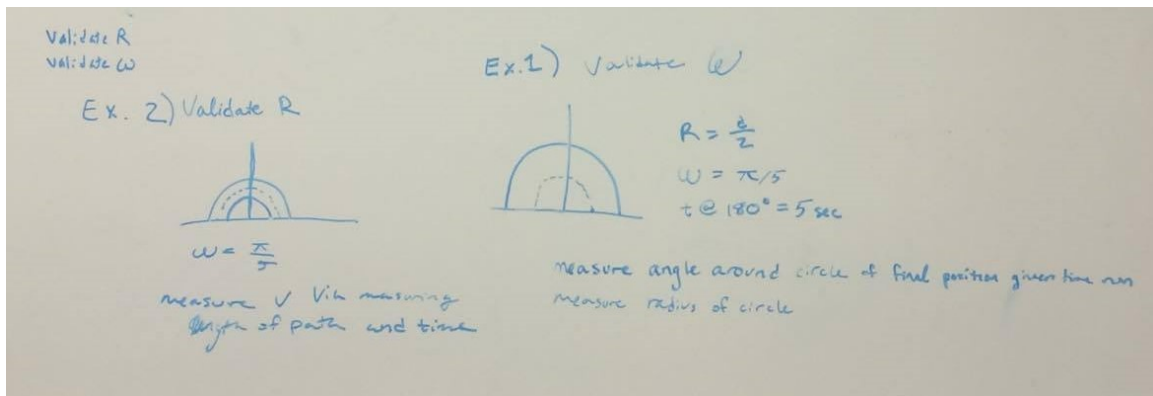 Validate R
Validate ω
Ex. 2) Validate R
ω = π/5
measure v via measuring
length of path and time
Ex. 1) Validate ω
R = d/2
ω = π/5
t @ 180° = 5 sec
measure angle around circle of final position given time run
measure radius of circle